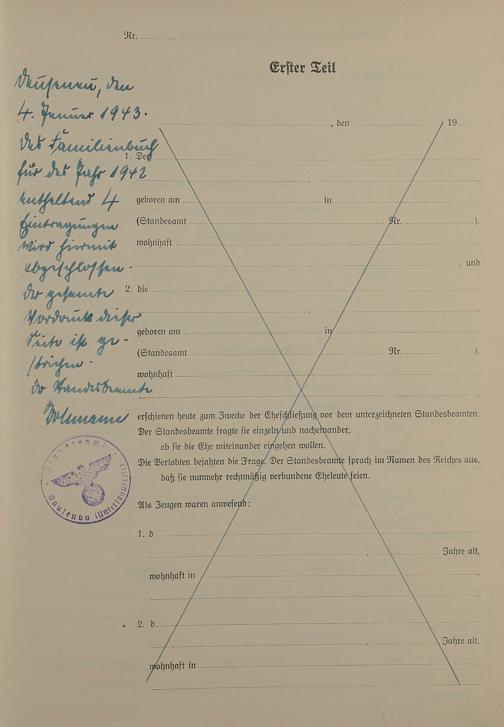 Nr.
Erster Teil
Dausenau, den
4. Januar 1943.
Das Familienbuch
für das Jahr 1942
enthaltend 4
Eintragungen
wird hiermit
abgeschlossen.
Der gesamte
Vordruck dieser
Seite ist ge-
strichen.
Der Standesbeamte
, den 19
1. Der
geboren am in
(Standesamt Nr. ).
wohnhaft
, und
2. die
geboren am in
(Standesamt Nr. ).
wohnhaft
erschienen heute zum Zwecke der Eheschließung vor dem unterzeichneten Standesbeamten.
Der Standesbeamte fragte sie einzeln und nacheinander,
ob sie die Ehe miteinander eingehen wollen.
Die Verlobten bejahten die Frage. Der Standesbeamte sprach im Namen des Reiches aus,
daß sie nunmehr rechtmäßig verbundene Eheleute seien.
Als Zeugen waren anwesend:
1. d
, Jahre alt,
wohnhaft in
2. d
, Jahre alt,
wohnhaft in
Standesamt
Dausenau (Unterlahnkreis)